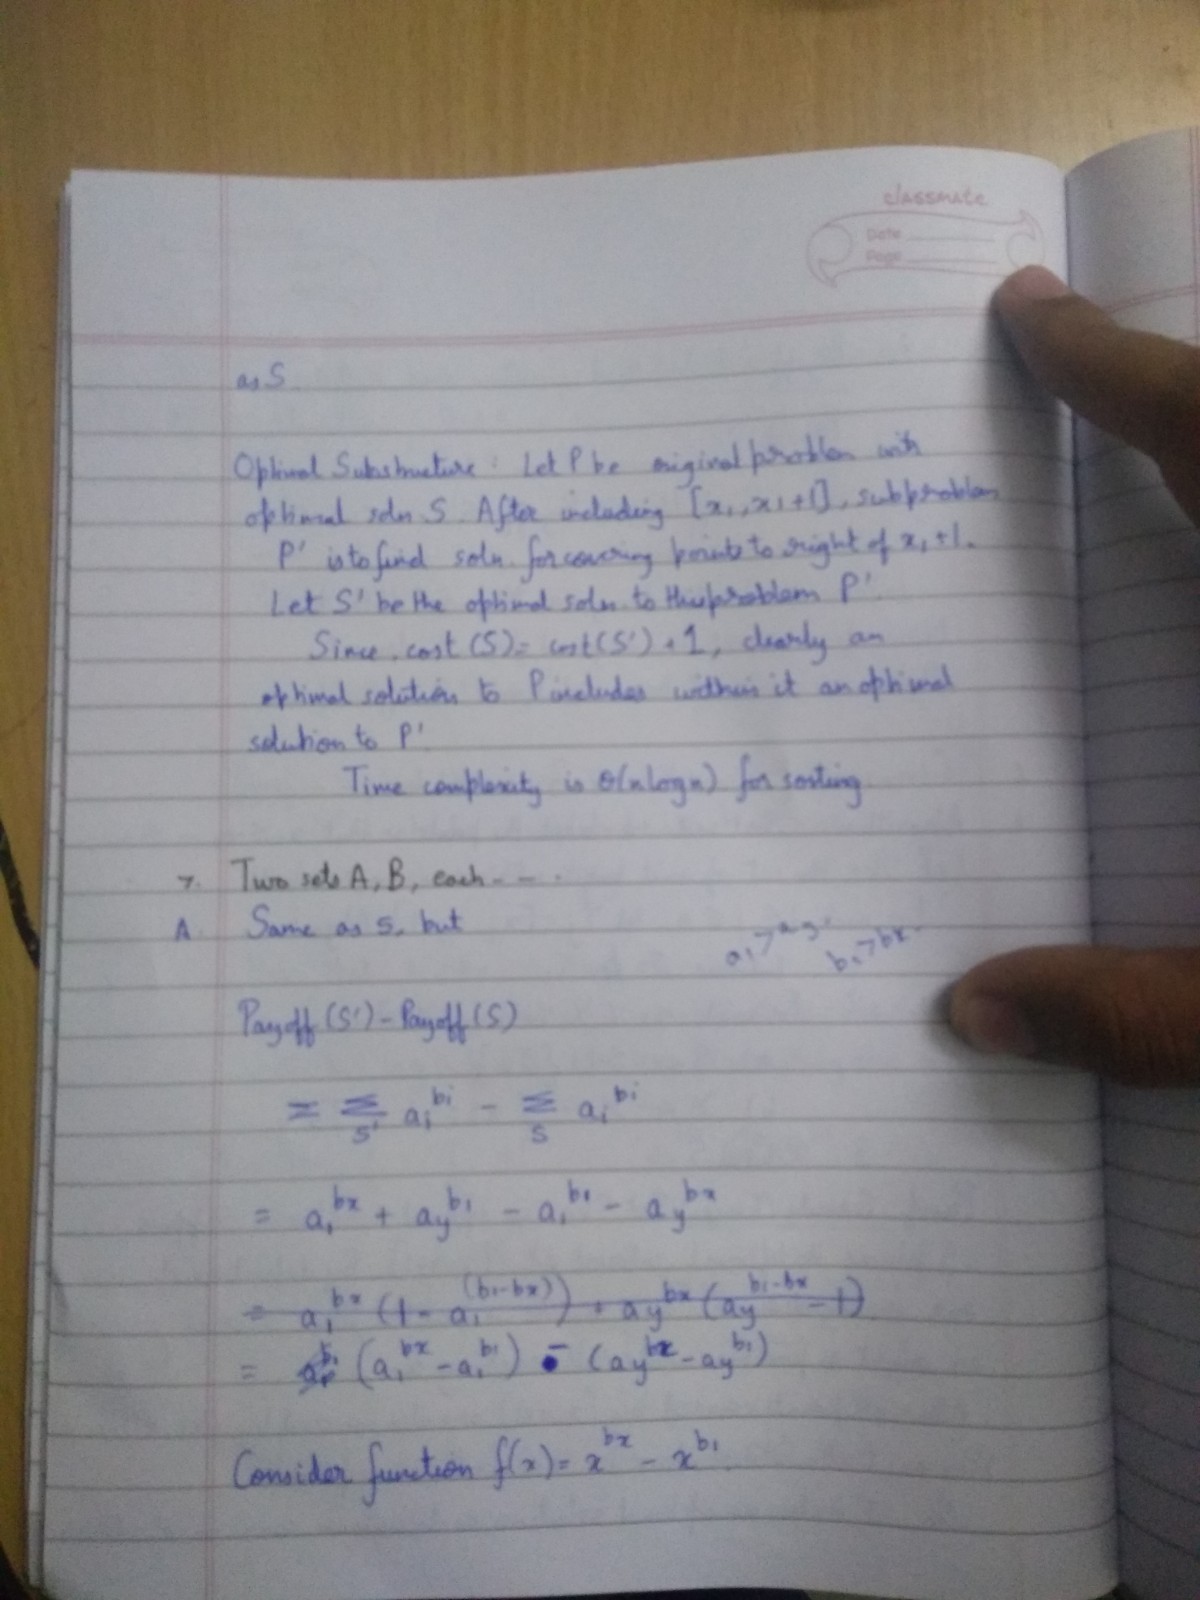 classmate
Date
Page
as S
Optimal Substructure : Let P be original problem with
optimal soln S. After including [x₁, x₁+1], subproblem
P' is to find soln. for covering points to right of x₁+1.
Let S' be the optimal soln. to this problem P'.
Since, cost (S) = cost(S') + 1, clearly an
optimal solution to P includes within it an optimal
solution to P'.
Time complexity is θ(nlogn) for sorting.
7. Two sets A, B, each - - - .
A. Same as 5, but
a₁ > ay. b₁ > bx.
Payoff (S') - Payoff (S)
= Σ_S' aᵢ^bᵢ - Σ_S aᵢ^bᵢ
= a₁^bx + ay^b₁ - a₁^b₁ - ay^bx
= a₁^bx (1 - a₁^(b₁-bx)) + ay^bx (ay^b₁-bx - 1)
= (a₁^bx - a₁^b₁) - (ay^bx - ay^b₁)
Consider function f(x) = x^bx - x^b₁.